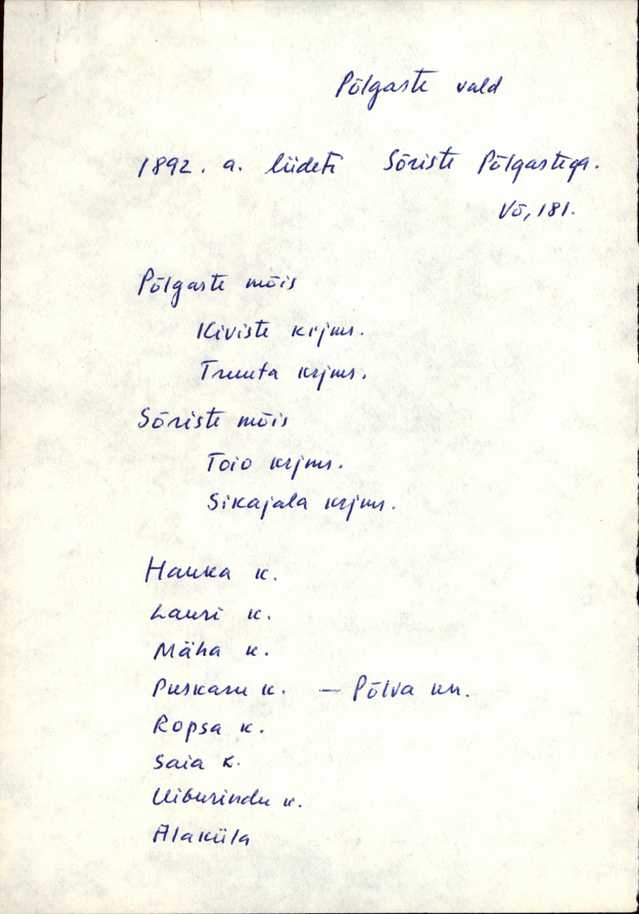 Põlgaste vald
1892. a. liideti Sõriste Põlgastega.
Võ, 181.
Põlgaste mõis
Kiviste krjms.
Truuta krjms.
Sõriste mõis
Toio krjms.
Sikajala krjms.
Hauka k.
Lauri k.
Mäha k.
Puskaru k. – Põlva kn.
Ropsa k.
Saia k.
Uiburindu k.
Alaküla